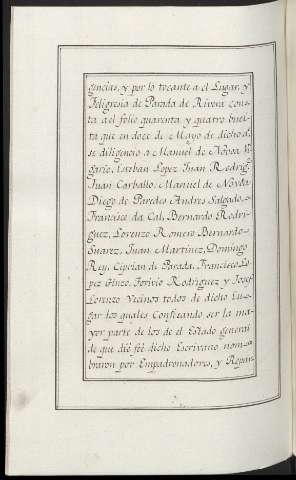 gencias, y por lo tocante a el Lugar, y
Feligresia de Parada de Rivera cons-
ta al folio quarenta y quatro buel-
ta que en doce de Mayo de dicho a.
se diligencio a Manuel de Nóvoa
garte, Esteban Lopez Juan Rodrig.
Juan Carballo, Manuel de Nóvoa
Diego de Paredes Andres Salgado,
Francisco da Cal, Bernardo Rodri-
guez, Lorenzo Romero Bernardo
Suarez, Juan Martinez, Domingo
Rey, Ciprian de Parada, Francisco Lo-
pez Ginzo, Torivio Rodriguez y Josef
Lorenzo Vecinos todos de dicho Lu-
gar los quales Confesando ser la ma-
yor parte de los de el Estado general
de que dió feé dicho Escrivano nom-
braron por Empadronadores, y Repar-